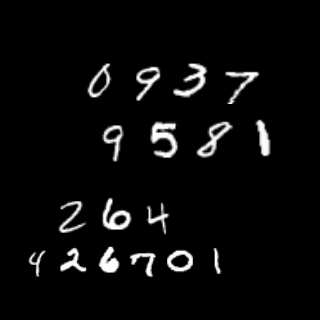 0 9 3 7
9 5 8 1
2 6 4
4 2 6 7 0 1